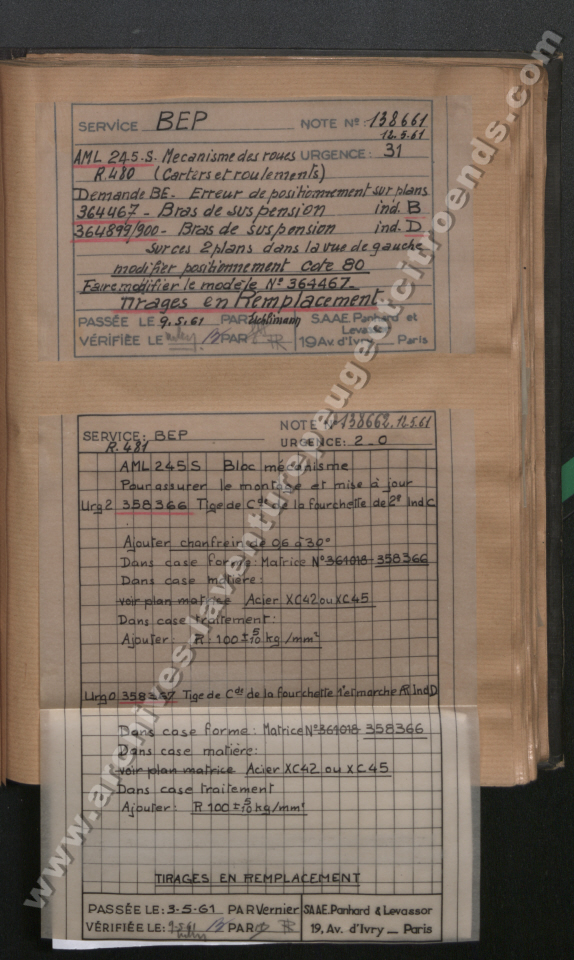 SERVICE BEP NOTE Nº 138661
12.5.61
AML 245.S. Mecanisme des roues URGENCE: 31
R.480 (Carters et roulements)
Demande BE. Erreur de positionnement sur plans
364467 - Bras de suspension ind. B
364899/900 - Bras de suspension ind. D
Sur ces 2 plans dans la vue de gauche
modifier positionnement cote 80
Faire modifier le modèle Nº 364467.
Tirages en Remplacement
PASSÉE LE 9.5.61 PAR SAAE Panhard et
Levassor
VÉRIFIÉE LE PAR 19 Av. d'Ivry _ Paris
NOTE Nº 138662. 12.5.61
SERVICE: BEP
URGENCE: 2_0
R.481
AML 245 S Bloc mécanisme
Pour assurer le montage et mise à jour
Urg 2 358366 Tige de Cde de la fourchette de 2e Ind C
Ajouter chanfrein de 0,6 à 30°
Dans case forme: Matrice Nº 361018 358366
Dans case matière:
voir plan matrice Acier XC42 ou XC45
Dans case traitement:
Ajouter: R: 100 ± 5/10 kg/mm²
Urg 0 358367 Tige de Cde de la fourchette 1e et marche AR Ind D
Dans case forme: Matrice Nº 361018 358366
Dans case matière:
voir plan matrice Acier XC42 ou XC45
Dans case traitement
Ajouter: R 100 ± 5/10 kg/mm²
TIRAGES EN REMPLACEMENT
PASSÉE LE: 3-5-61 PAR Vernier SAAE. Panhard & Levassor
VÉRIFIÉE LE: 9.5.61 PAR 19, Av. d'Ivry _ Paris
www.archives-laventurepeugeotcitroends.com